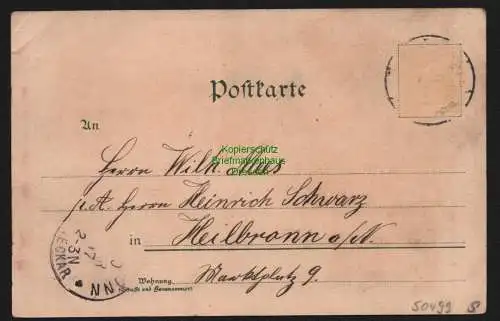 Postkarte
An
Kopierschutz
Briefmarkenhaus
Herrn Wilh. Mees
p.A. Herrn Heinrich Schwarz
in Heilbronn a/N.
Wohnung
(Straße und Hausnummer)
Marktplatz 9.
NECKAR
2-3N
17
50499 S